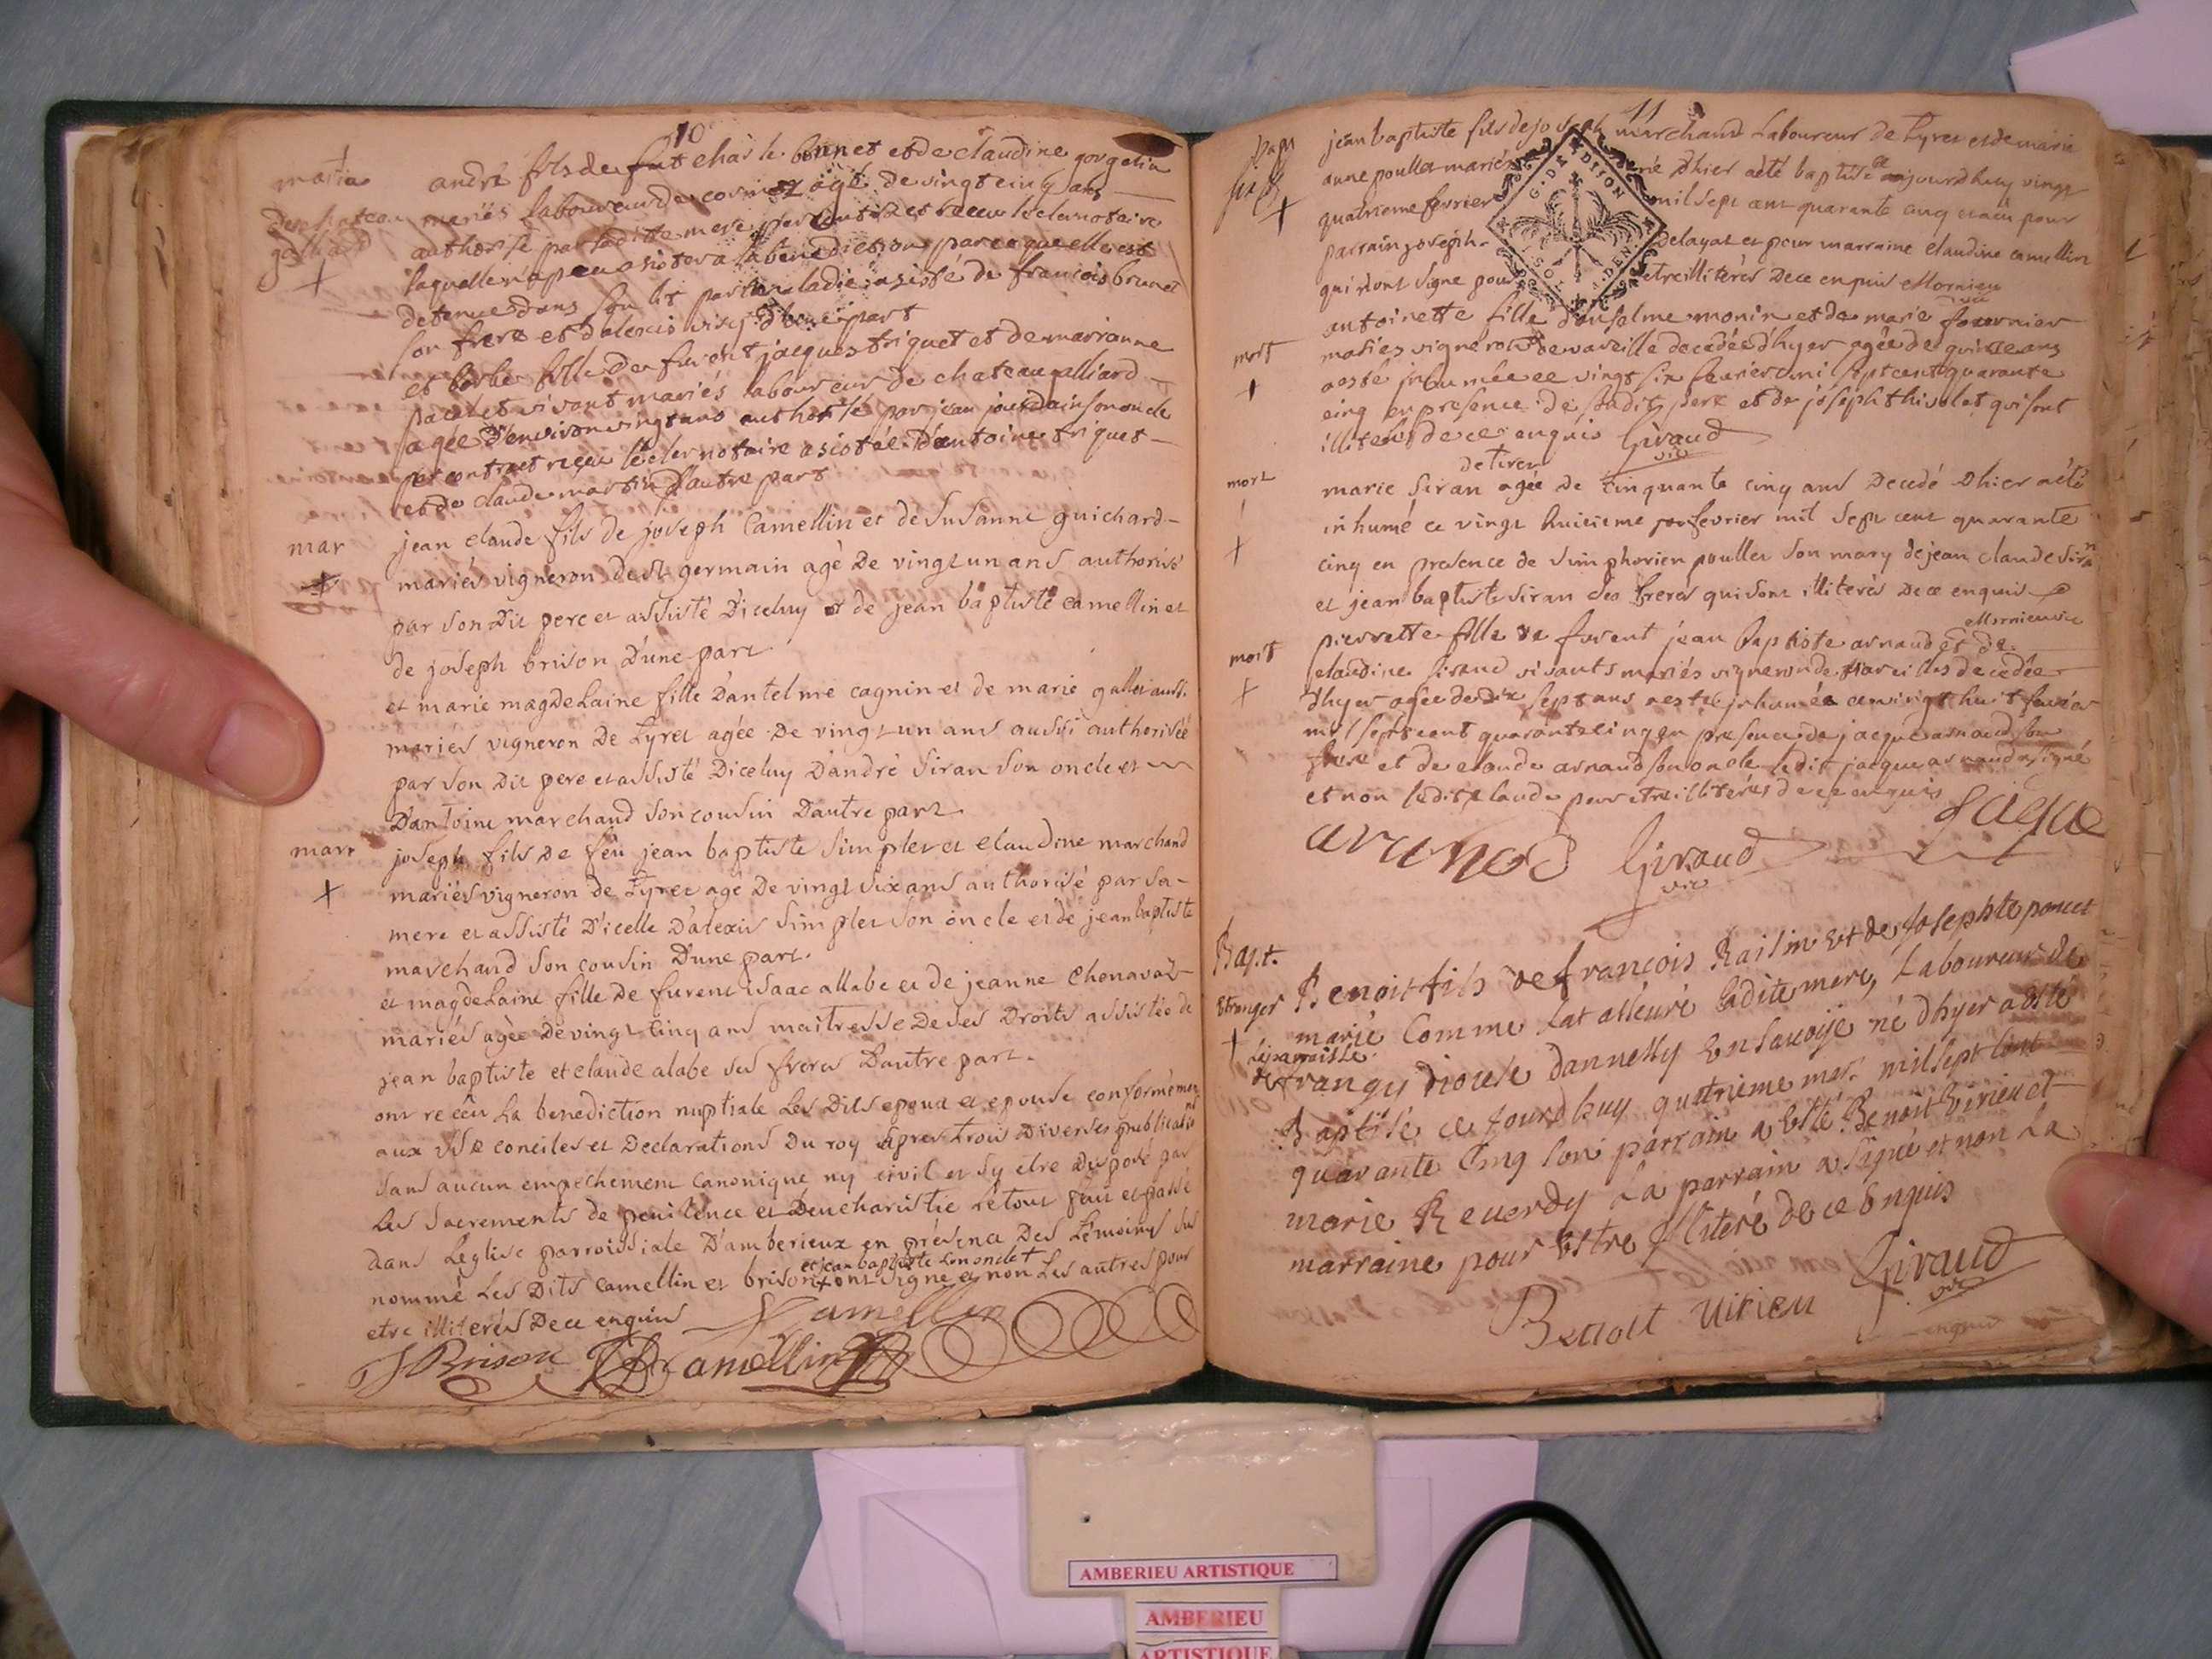 10
andré fils de fut charle bonnet et de claudine
mariés laboureur de agé de vingt cinq ans
authorisé par laditte mere par contract receu lecler notaire
laquelle n'a peu asister a la benediction parce quelle est
detenue dans son lit par maladie asisté de francois brunet
son frere et dalexis d'une part
et fille de furent jacques triquet et de marianne
pacalet vivant mariés laboureur de chateau galliard
agée d'environ vingt ans authorisé par jean jourdain son oncle
par contract reçeu lecler notaire asistée d'antoine triquet
et de claude martin d'autre part
mar
jean claude fils de joseph Camellin et de Susanne guichard
mariés vigneron de st germain agè De vingt un ans authorisé
par son Dit pere et assisté D'iceluy et de jean baptiste camellin et
de joseph brison D'une part
et marie magdelaine fille D'antelme cagnin et de marie gallet aussi
mariés vigneron De Tyret agée De vingt un ans aussi authorisée
par son Dit pere et assisté Diceluy D'andré Siran son oncle et
D'antoine marchand son cousin Dautre part
mar
joseph fils De feu jean baptiste Simplet et claudine marchand
mariés vigneron de Tyret agé De vingt six ans authorisé par sa
mere et assisté D'icelle D'alexis Simplet son oncle et de jean baptiste
marchand son cousin D'une part.
et magdelaine fille De furent isaac allabe et de jeanne Chenavaz
mariés agèe De vingt cinq ans maitresse De ses Droits assistée de
jean baptiste et claude alabe ses freres Dautre part.
ont receu La benediction nuptiale Les Dits epoux et epouse conformement
aux Sts conciles et Declarations Du roy apres trois Diverses publications
sans aucun empechement canonique ny civil et sy etre Disposé par
Les Sacrements de penitence et Deucharistie le tout fait et passé
dans Leglise parroissiale D'amberieux en présence Des temoins sus
et jean baptiste
nommé Les Dits camellin et brison ont signe et non Les autres pour
etre illiterés De ce enquis Camellin
J Brison Camellin
11
jean baptiste fils de joseph marchand Laboureur de Tyret et de marie
anne poullet mariés né Dhier aété baptisé aujourdhuy vingt
quatrieme fevrier mil sept cent quarante cinq et a eu pour
parrain joseph Delayat et pour marraine claudine camellin
qui n'ont signe pour etre illiterés De ce enquis Mornieu
vic
mort
antoinette fille d'anselme monin et de marie fournier
mariés vigneron de vareille decedée d'hyer agée de quinze ans
a esté inhumée ce vingt six fevrier mil sept cent quarante
cinq en presence de sondit pere et de joseph thivolet qui sont
illiterés de ce enquis Giraud
vic
de tiret
mort
marie Siran agée De Cinquante cinq ans Decedé Dhier aété
inhumé ce vingt huitieme fevrier mil Sept cent quarante
cinq en presence de Simphorien poullet son mary de jean claude Siran
et jean baptiste Siran ses freres qui sont illiterés De ce enquis
Mornieu vic
mort
pierrette fille de furent jean baptiste arnaud et de
claudine sirand vivants mariés vigneron de vareilles decedée
d'hyer agée de dix sept ans a esté inhumée ce vingt huit fevrier
mil sept cent quarante cinq en presence de jacque arnaud son
frere et de claude arnaud son oncle ledit jacque arnaud a signé
et non ledit claude pour être illiterés de ce enquis
jaque
arunod Giraud
vic
Bapt.
Etranger
Benoit fils de francois Railin Et de Josephte poncet
marié Comme Lat alleuré ladite mere, Laboureur de
La paroisse
de frangy diocese dannessy En Savoye né d'hyer a esté
Baptisé ce jourdhuy quatrieme mar. mil sept Cent
quarante Cinq Son parrain a Esté Benoit Virieu et
marie Reverdy La parrain a signé et non La
marraine pour Estre Illiteré de ce Enquis
Benoit Uirieu Giraud
vic
AMBERIEU ARTISTIQUE
AMBERIEU
ARTISTIQUE